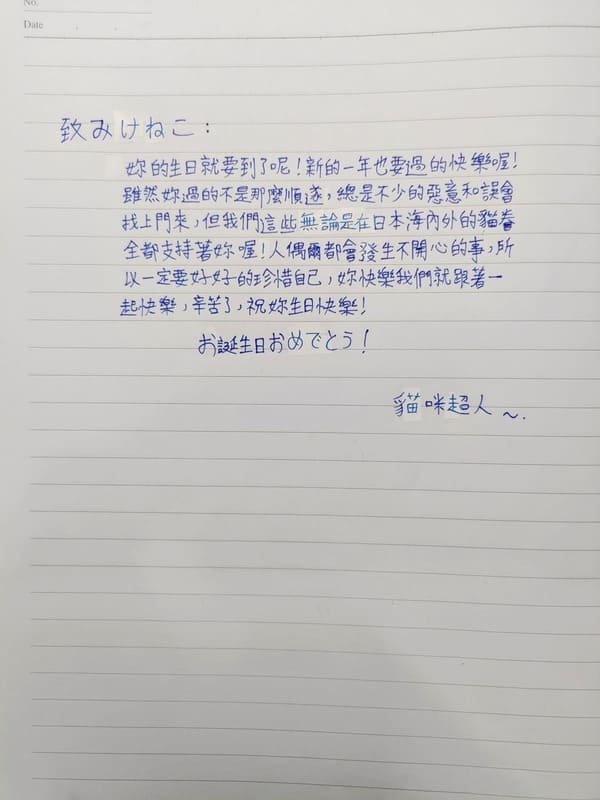 No.
Date
致みけねこ：
妳的生日就要到了呢！新的一年也要過的快樂喔！
雖然妳過的不是那麼順遂，總是不少的惡意和誤會
找上門來，但我們這些無論是在日本海內外的貓眷
全都支持著妳喔！人偶爾都會發生不開心的事，所
以一定要好好的珍惜自己，妳快樂我們就跟著一
起快樂，辛苦了，祝妳生日快樂！
お誕生日おめでとう！
貓咪超人～.